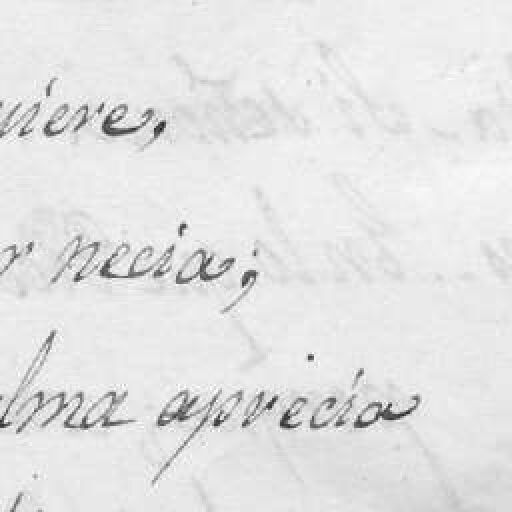 uiere,
r necia;
alma aprecia